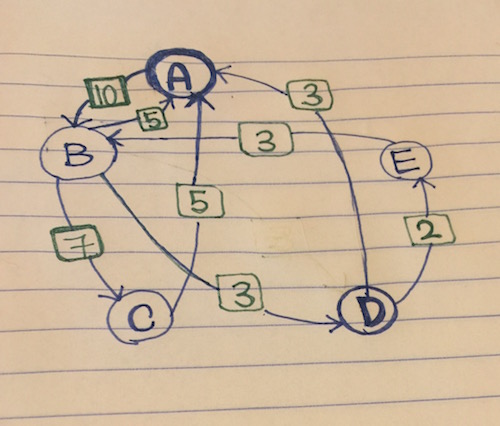 A
10
3
5
3
B
E
5
7
2
3
C
D